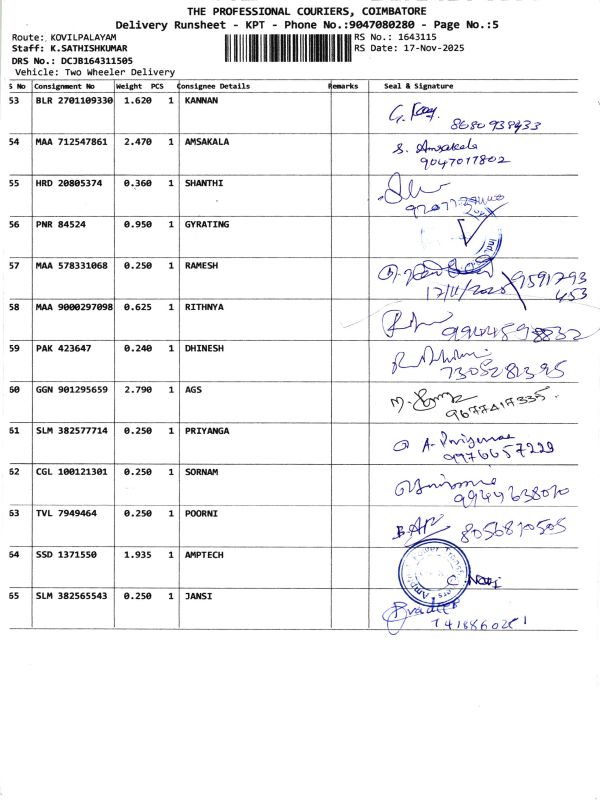 THE PROFESSIONAL COURIERS, COIMBATORE
Delivery Runsheet - KPT - Phone No.:9047080280 - Page No.:5
Route: KOVILPALAYAM RS No.: 1643115
Staff: K.SATHISHKUMAR RS Date: 17-Nov-2025
DRS No.: DCJB164311505
Vehicle: Two Wheeler Delivery
S No Consignment No Weight PCS Consignee Details Remarks Seal & Signature
53 BLR 2701109330 1.620 1 KANNAN
8680938433
54 MAA 712547861 2.470 1 AMSAKALA S. Amsakala
9047017802
55 HRD 20805374 0.360 1 SHANTHI
56 PNR 84524 0.950 1 GYRATING
57 MAA 578331068 0.250 1 RAMESH 9591793
17/11/2025 453
58 MAA 9000297098 0.625 1 RITHNYA
59 PAK 423647 0.240 1 DHINESH
7305281395
60 GGN 901295659 2.790 1 AGS
9677417335
61 SLM 382577714 0.250 1 PRIYANGA
9976657229
62 CGL 100121301 0.250 1 SORNAM
9944638010
63 TVL 7949464 0.250 1 POORNI
8056870505
64 SSD 1371550 1.935 1 AMPTECH
65 SLM 382565543 0.250 1 JANSI